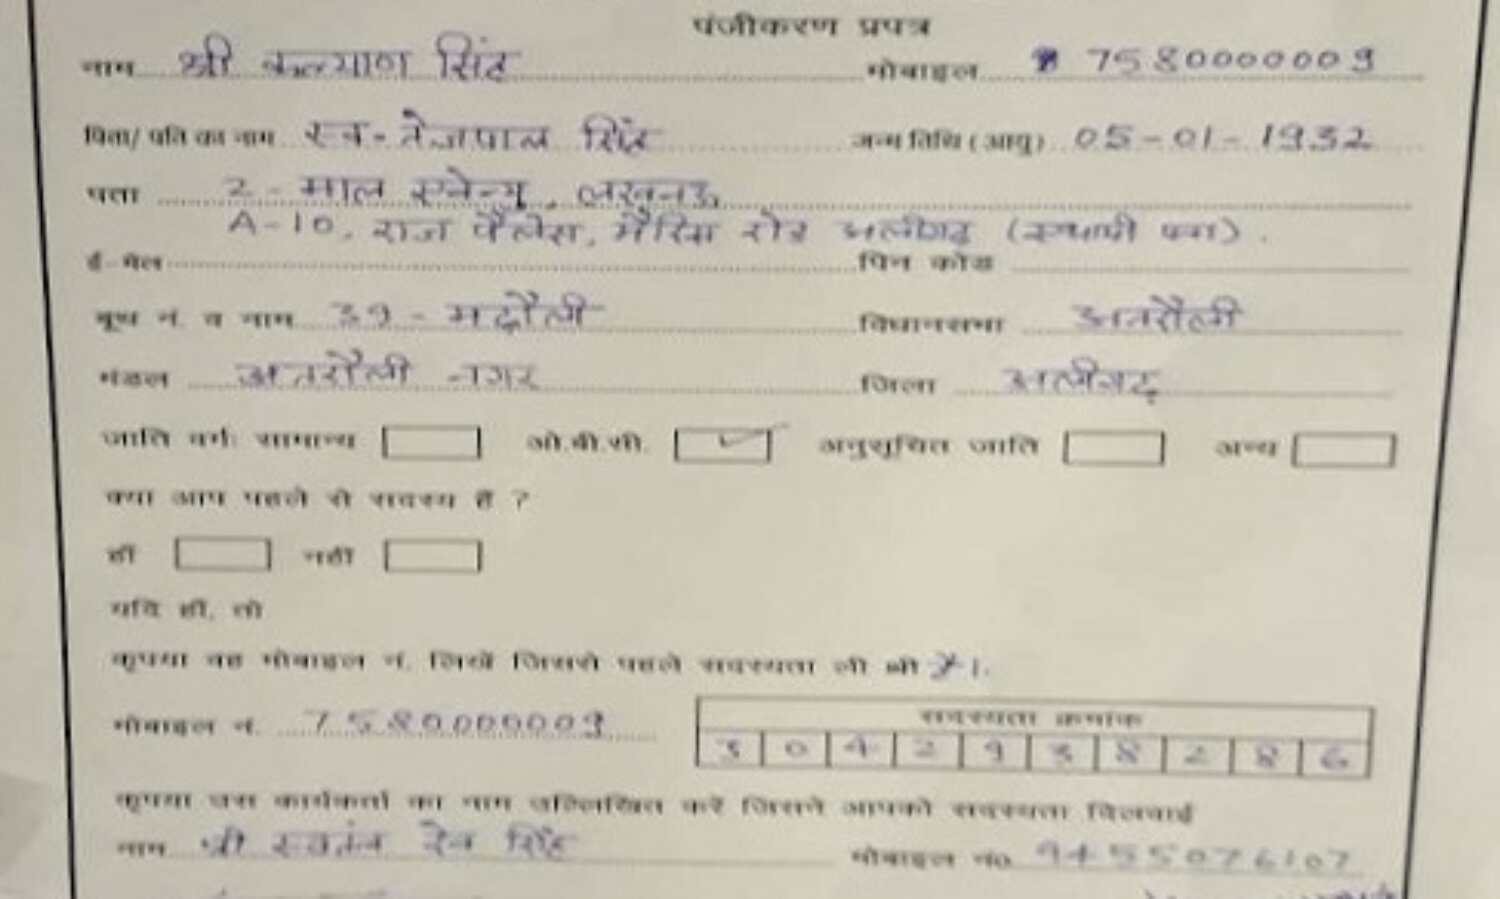 पंजीकरण प्रपत्र
नाम श्री कल्याण सिंह मोबाइल 7580000009
पिता/ पति का नाम स्व- तेजपाल सिंह जन्म तिथि (आयु) 05-01-1932
पता 2 - माल एवेन्यु, लखनऊ
A-10, राज पैलेस, मैरिस रोड अलीगढ़ (स्थायी पता).
ई-मेल पिन कोड
बूथ नं. व नाम 39 - मढ़ौली विधानसभा अतरौली
मंडल अतरौली नगर जिला अलीगढ़
जाति वर्ग: सामान्य ओ.बी.सी. ✓ अनुसूचित जाति अन्य
क्या आप पहले से सदस्य हैं ?
हाँ नहीं
यदि हाँ, तो
कृपया वह मोबाइल नं. लिखें जिससे पहले सदस्यता ली थी
मोबाइल नं. 7580000009 सदस्यता क्रमांक
3 0 4 2 9 3 8 2 8 6
कृपया उस कार्यकर्ता का नाम उल्लिखित करें जिसने आपको सदस्यता दिलवाई
नाम श्री स्वतंत्र देव सिंह मोबाइल नं० 9455076107